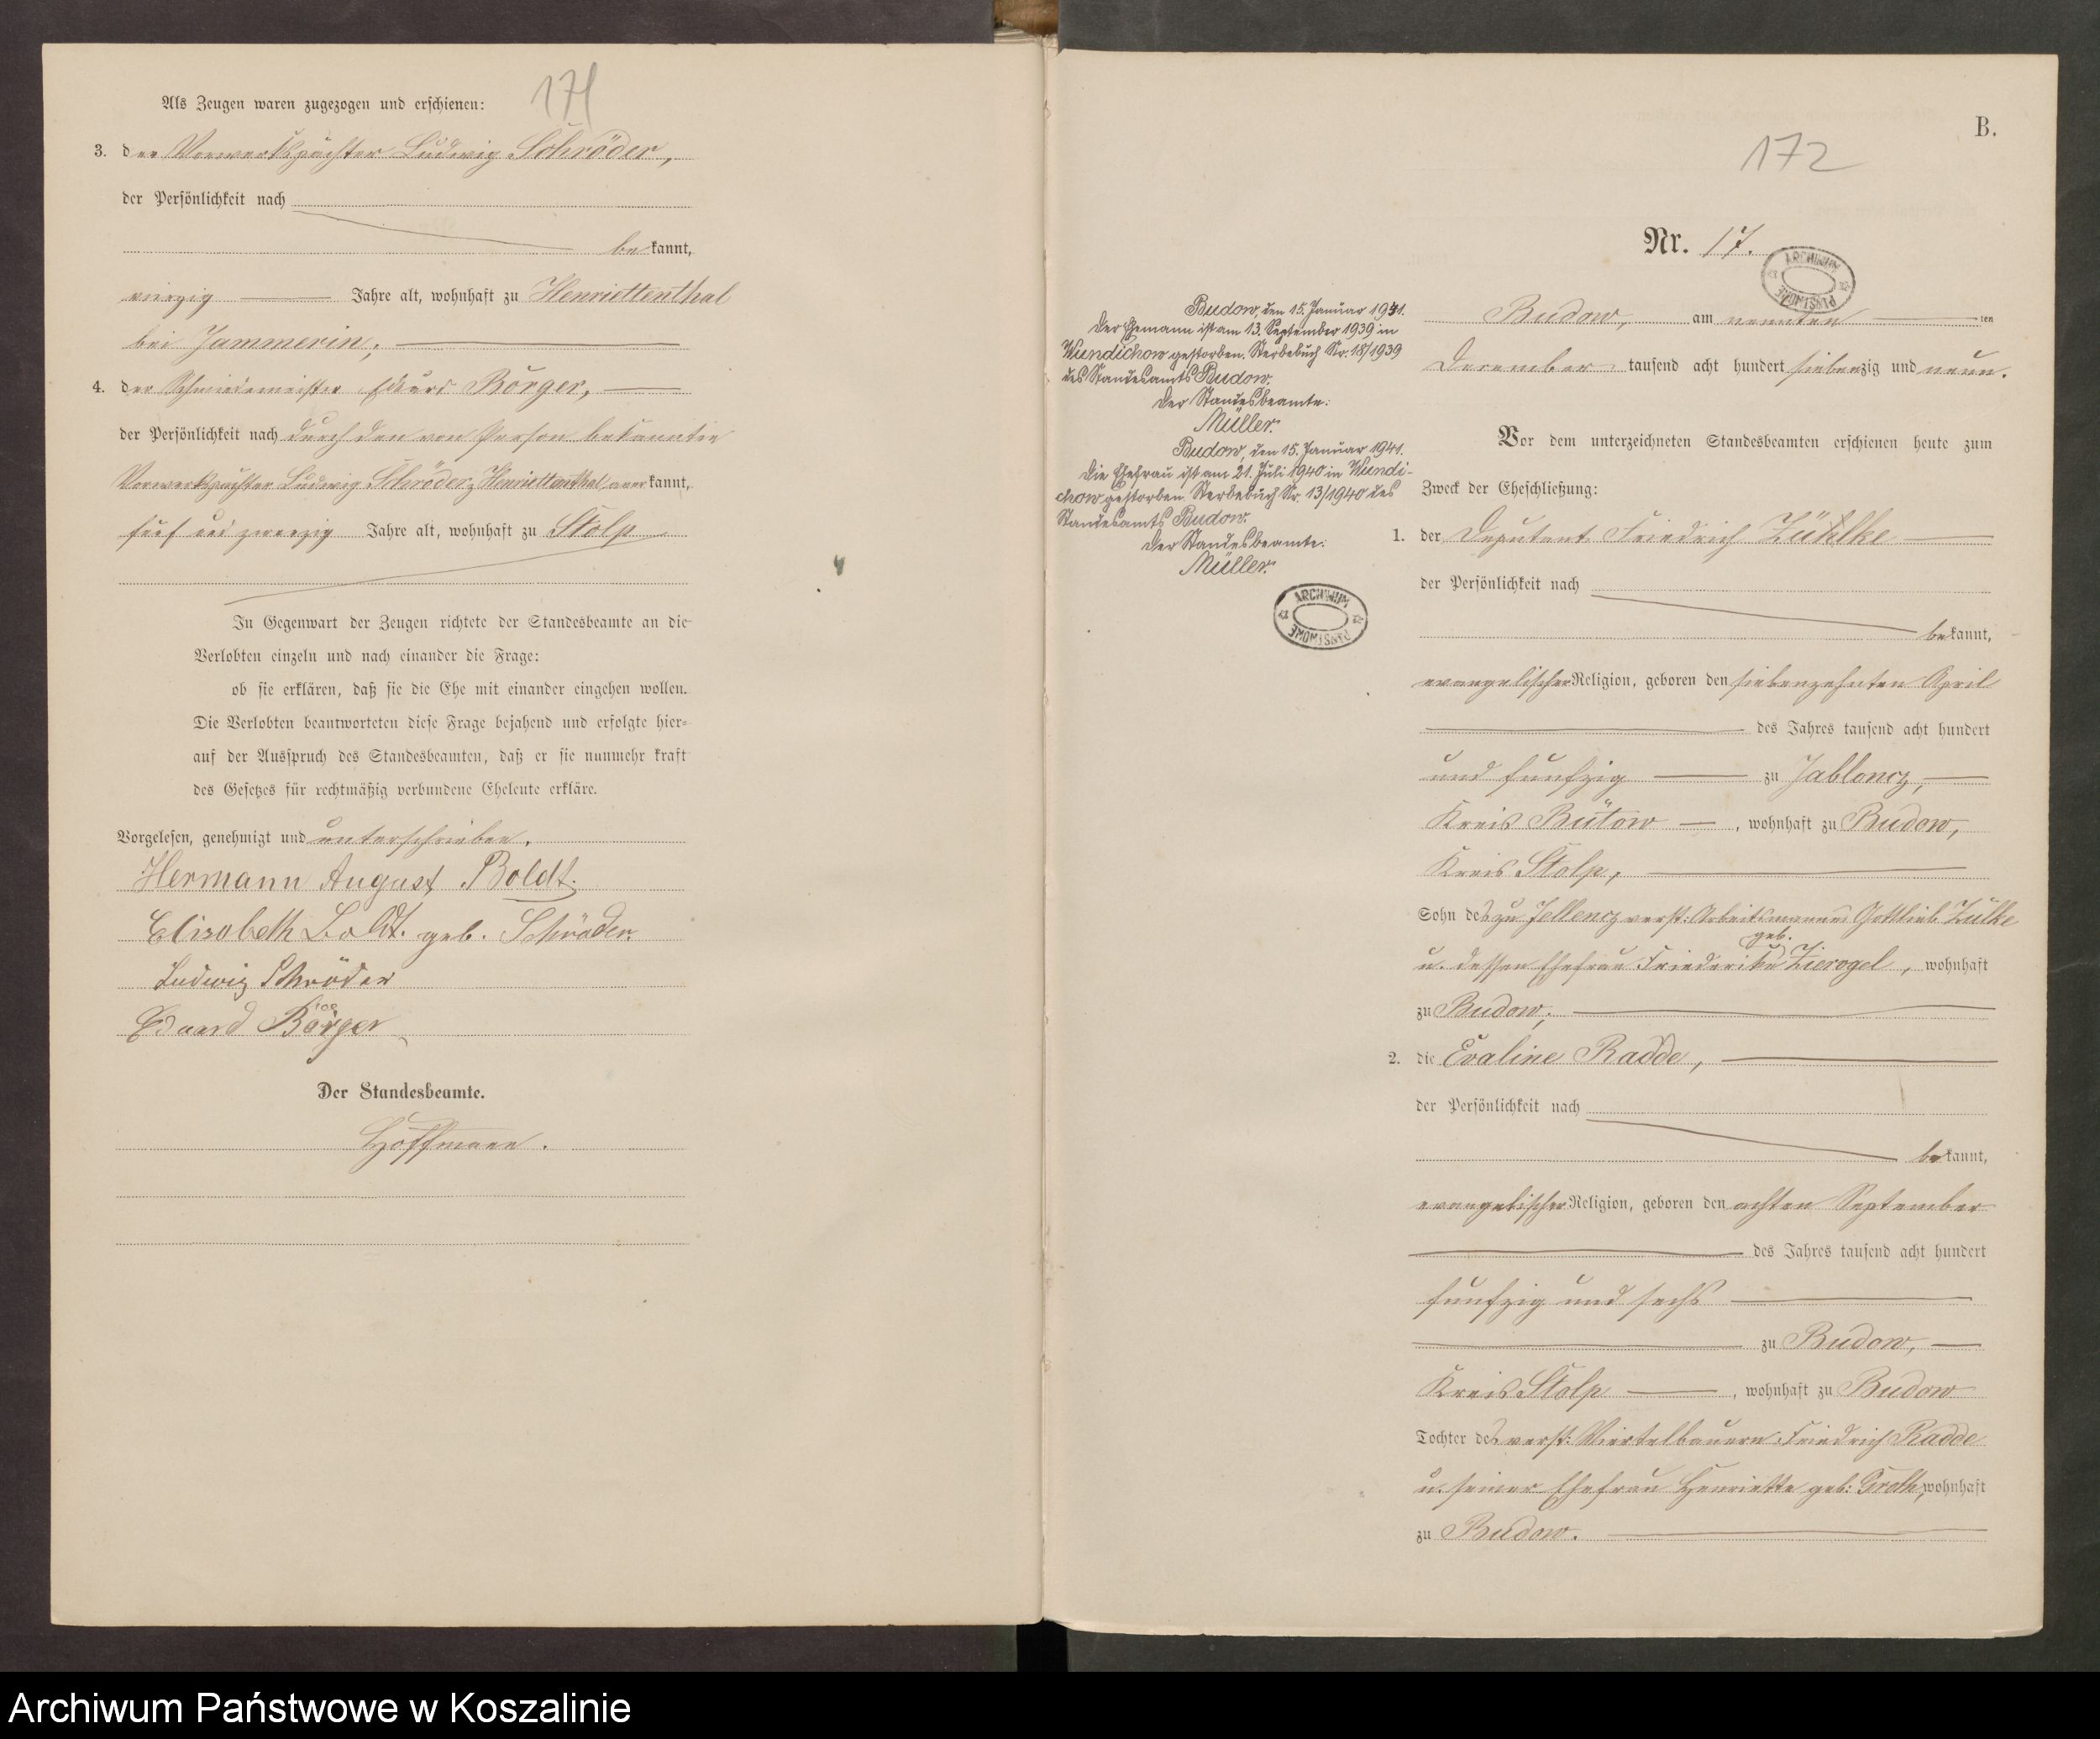 171
Als Zeugen waren zugezogen und erschienen:
3. der Vorwerkspächter Ludwig Schröder,
der Persönlichkeit nach
bekannt,
vierzig Jahre alt, wohnhaft zu Henriettenthal
bei Jammerin;
4. der Schmiedemeister Eduard Börger,
der Persönlichkeit nach durch den von Person bekannten
Vorwerkspächter Ludwig Schröder z. Henriettenthal, anerkannt,
fünf und zwanzig Jahre alt, wohnhaft zu Stolp
In Gegenwart der Zeugen richtete der Standesbeamte an die
Verlobten einzeln und nach einander die Frage:
ob sie erklären, daß sie die Ehe mit einander eingehen wollen.
Die Verlobten beantworteten diese Frage bejahend und erfolgte hier=
auf der Ausspruch des Standesbeamten, daß er sie nunmehr kraft
des Gesetzes für rechtmäßig verbundene Eheleute erkläre.
Vorgelesen, genehmigt und unterschrieben.
Hermann August Boldt.
Elisabeth Boldt. geb. Schröder.
Ludwig Schröder
Eduard Börger
Der Standesbeamte.
Hoffmann.
B.
172
Nr. 17.
ARCHIWUM PAŃSTWOWE
Budow, den 15. Januar 1941.
Der Ehemann ist am 13. September 1939 in
Wundichow gestorben. Sterbebuch Nr. 18/1939
des Standesamts Budow.
Der Standesbeamte:
Müller.
Budow, den 15. Januar 1941.
Die Ehefrau ist am 21. Juli 1940 in Wundi-
chow gestorben. Sterbebuch Nr. 13/1940 des
Standesamts Budow.
Der Standesbeamte:
Müller.
ARCHIWUM PAŃSTWOWE
Budow, am neunten ten
December tausend acht hundert siebenzig und neun.
Vor dem unterzeichneten Standesbeamten erschienen heute zum
Zweck der Eheschließung:
1. der Deputant Friedrich Zühlke
der Persönlichkeit nach
bekannt,
evangelischer Religion, geboren den siebenzehnten April
des Jahres tausend acht hundert
und funfzig zu Jabloncz,
Kreis Bütow, wohnhaft zu Budow,
Kreis Stolp,
Sohn des zu Jellencz verst: Arbeitsmannes Gottlieb Zülke
u. dessen Ehefrau Friederike geb. Zierogel, wohnhaft
zu Budow;
2. die Evaline Radde,
der Persönlichkeit nach
bekannt,
evangelischer Religion, geboren den achten September
des Jahres tausend acht hundert
funfzig und sechs
zu Budow,
Kreis Stolp, wohnhaft zu Budow
Tochter des verst: Viertelbauern Friedrich Radde
u. seiner Ehefrau Henriette geb: Groth, wohnhaft
zu Budow.
Archiwum Państwowe w Koszalinie